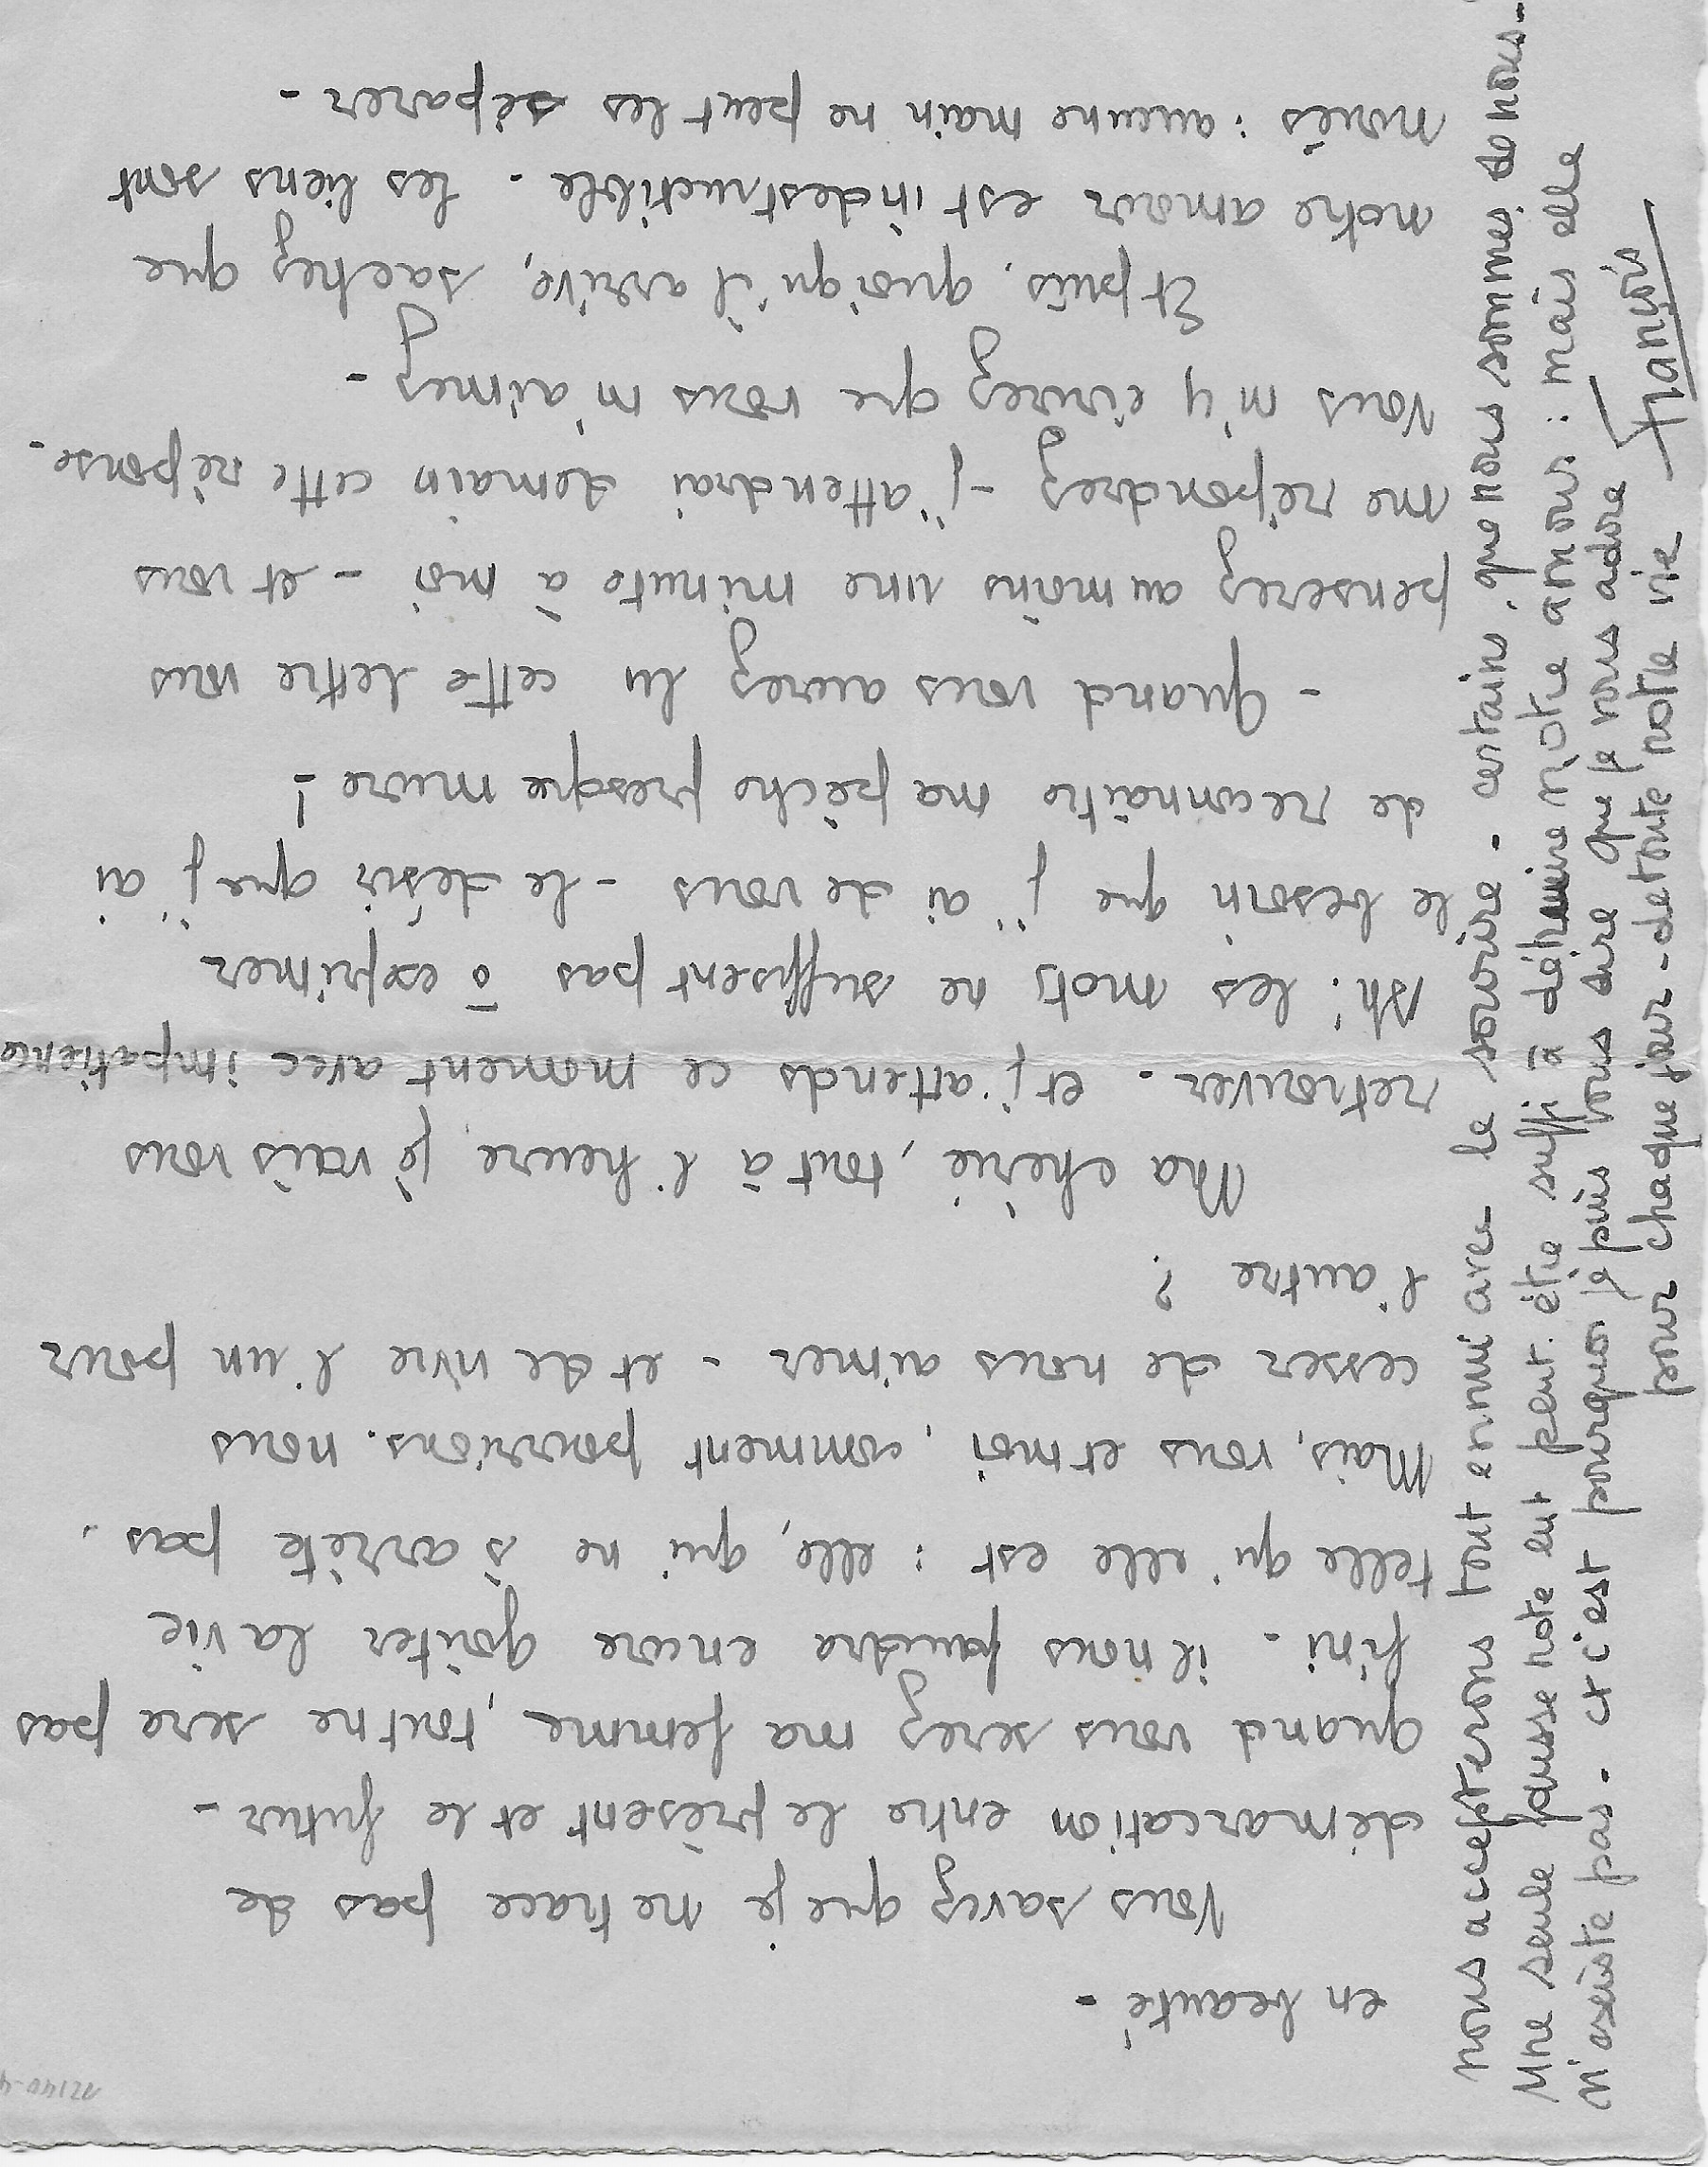 en beauté -
Vous savez que je ne trace pas de
démarcation entre le présent et le futur -
quand vous serez ma femme, tout ne sera pas
fini - il nous faudra encore goûter la vie
telle qu'elle est : elle, qui ne s'arrête pas.
Mais, vous et moi, comment pourrions-nous
cesser de nous aimer - et de vivre l'un pour
l'autre ?
Ma chérie, tout à l'heure je vais vous
retrouver - et j'attends ce moment avec impatience
Ah ! les mots ne suffisent pas à exprimer
le besoin que j'ai de vous - le désir que j'ai
de reconnaître ma pêche presque mûre !
- quand vous aurez lu cette lettre vous
penserez au moins une minute à moi - et vous
me répondrez - j'attendrai demain cette réponse -
Vous m'y écrirez que vous m'aimez -
Et puis, quoiqu'il arrive, sachez que
notre amour est indestructible - les liens sont
noués : aucune main ne peut les séparer -
nous accepterons tout ennui avec le sourire - certains, que nous sommes, de nous -
Une seule fausse note eut peut-être suffi à détruire notre amour : mais elle
n'existe pas - et c'est pourquoi je puis vous dire que je vous adore
pour chaque jour - de toute notre vie
François